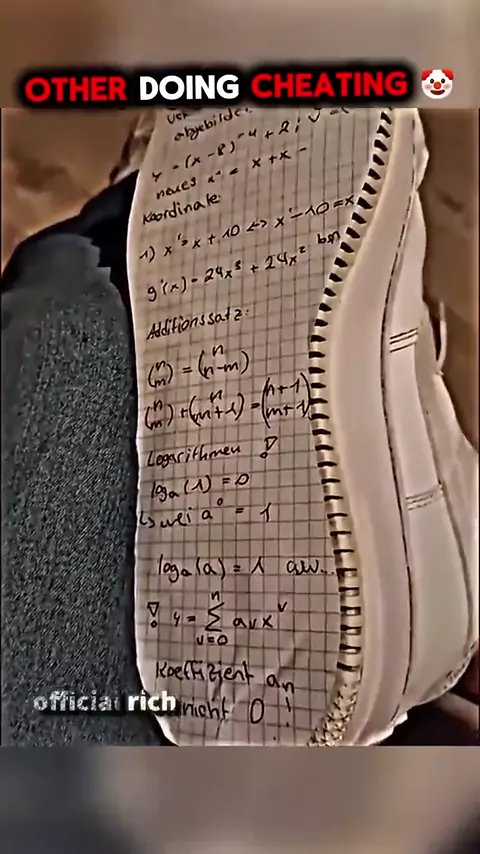 OTHER DOING CHEATING 🤡
abgebildet
y = (x - 8)⁻⁴ + 2;
neues x' = x + x -
Koordinate
1) x' = x + 10 <=> x' - 10 = x
g'(x) = 24x³ + 24x² bsp
Additionssatz:
(n m) = (n n-m)
(n m) + (n m+1) = (n+1 m+1)
Logarithmen !
logₐ(1) = 0
↳ weil a⁰ = 1
logₐ(a) = 1 aw..
! y = Σ aᵥxᵛ
n
v=0
Koeffizient aₙ
nicht 0 !
official rich